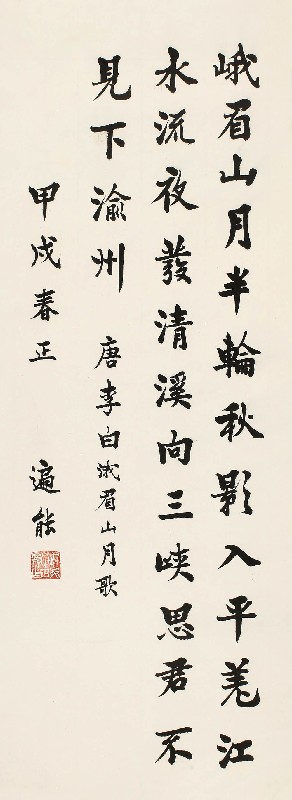 峨眉山月半輪秋影入平羗江
水流夜發清溪向三峽思君不
見下渝州
唐李白峩眉山月歌
甲戌春正
遍能